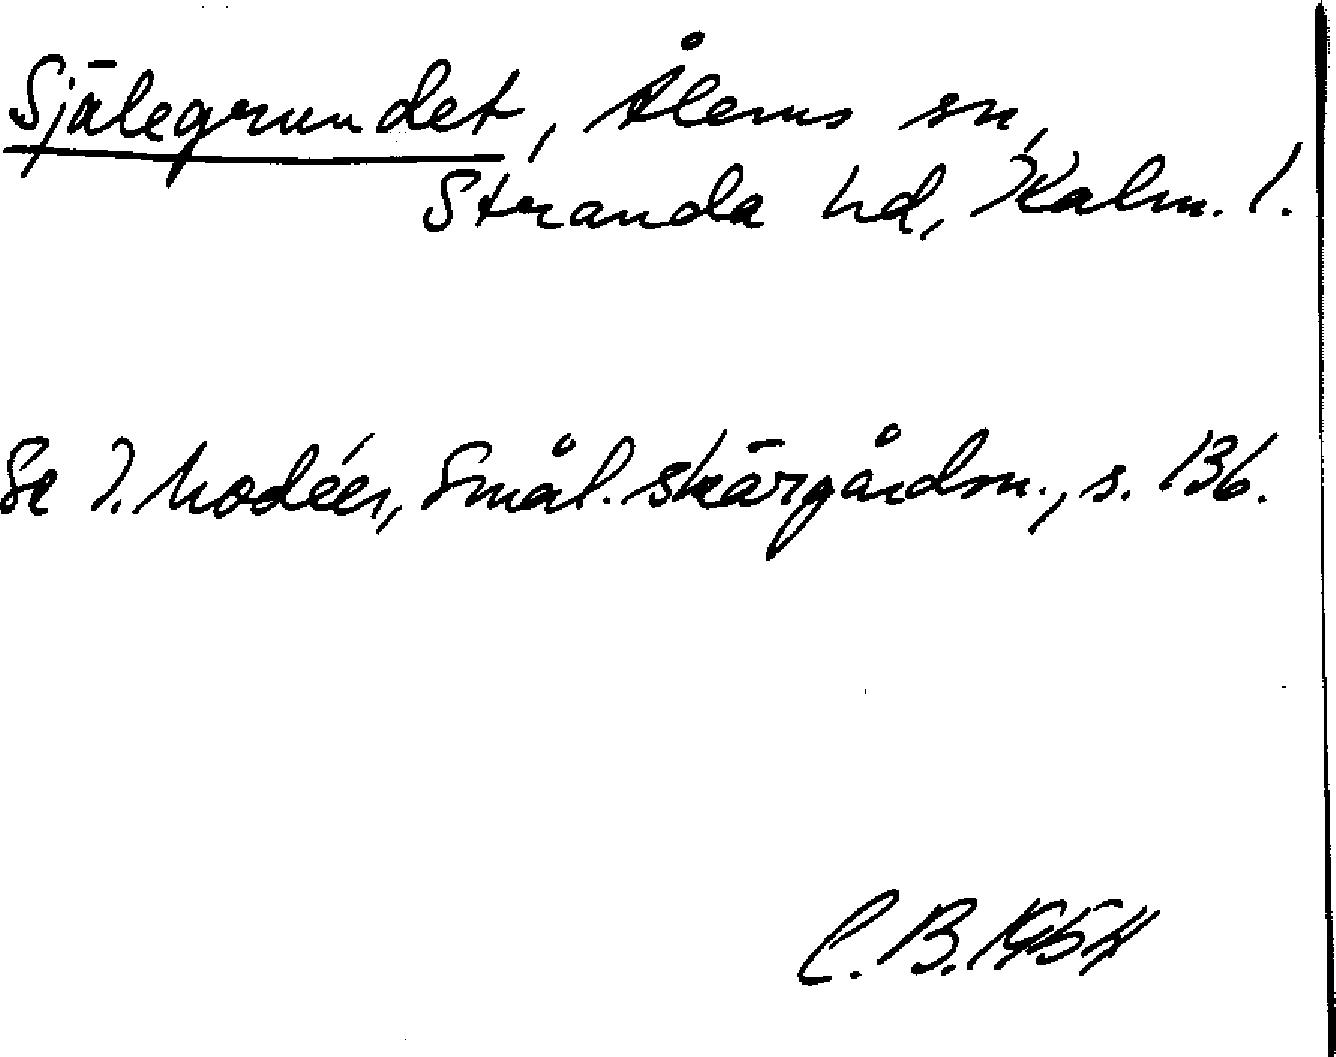 Själegrundet, Ålems sn,
Stranda hd, Kalm. l.
Se I. Modéer, Smål. skärgårdsn., s. 136.
C. B. 1954